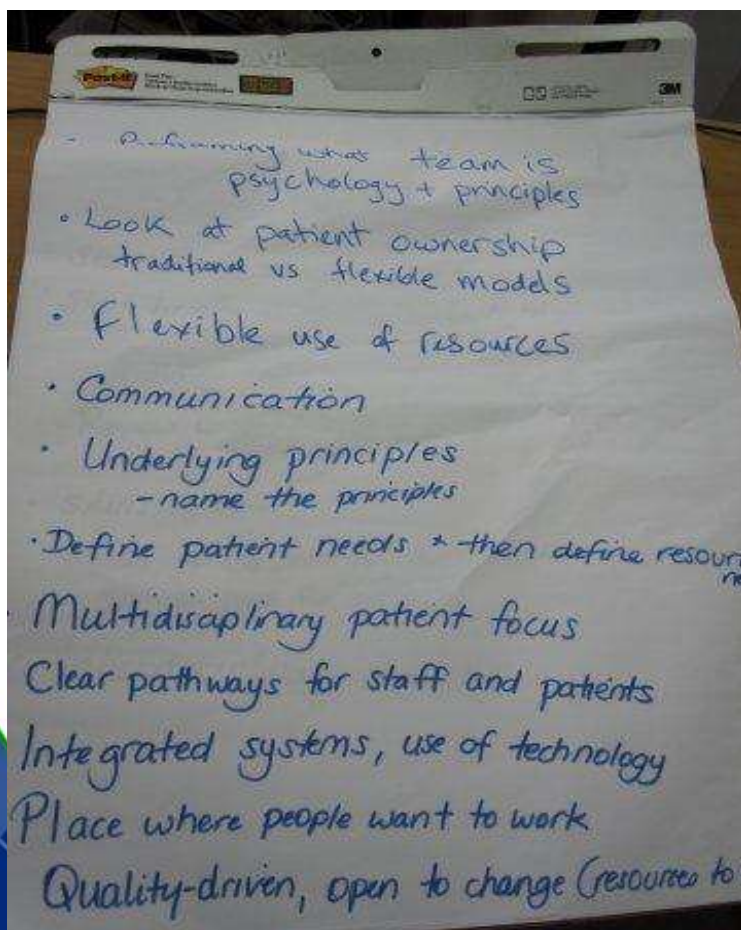 Post-it
3M
- Reframing what team is
psychology + principles
• Look at patient ownership
traditional vs flexible models
• Flexible use of resources
• Communication
• Underlying principles
- name the principles
• Define patient needs * then define resour
ne
• Multidisciplinary patient focus
Clear pathways for staff and patients
Integrated systems, use of technology
Place where people want to work
Quality-driven, open to change (resources to